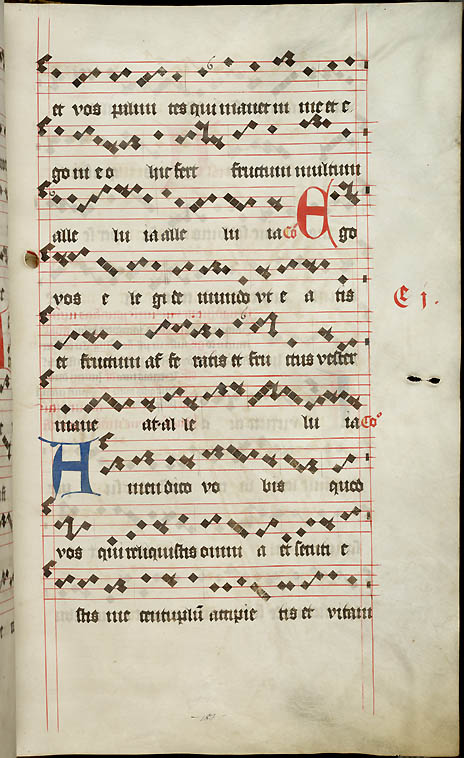 et vos palmi tes qui manet in me et e
go in e o hic fert fructum multum
alle lu ia alle lu ia Co Ego
vos e le gi de mundo vt e a tis
et fructum af fe ratis et fru ctus vester
mane at al le lu ia Co
Amen dico vo bis quod
vos qui reliquistis omni a et secuti e
stis me centuplū accipie tis et vitam
C j.